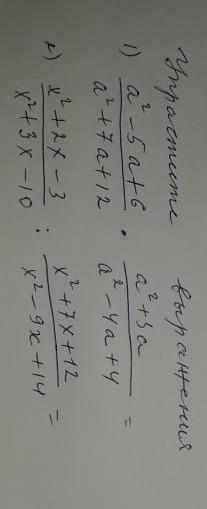 Упрастите выражения
1) (a² - 5a + 6)/(a² + 7a + 12) · (a² + 3a)/(a² - 4a + 4) =
2) (x² + 2x - 3)/(x² + 3x - 10) : (x² + 7x + 12)/(x² - 9x + 14) =